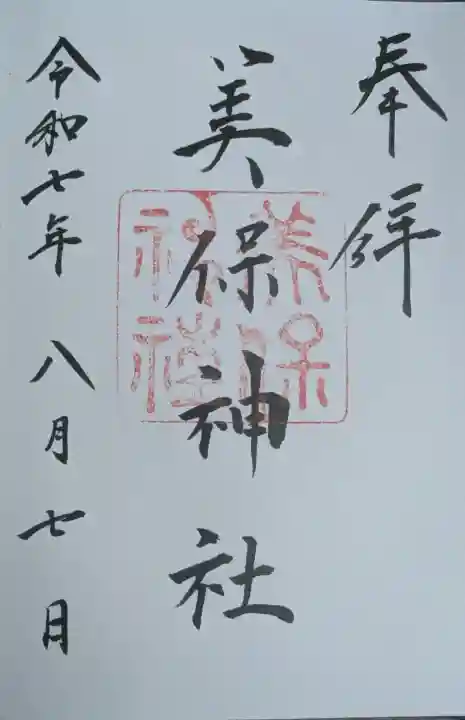 奉拝
美保神社
美保
神社
令和七年 八月七日